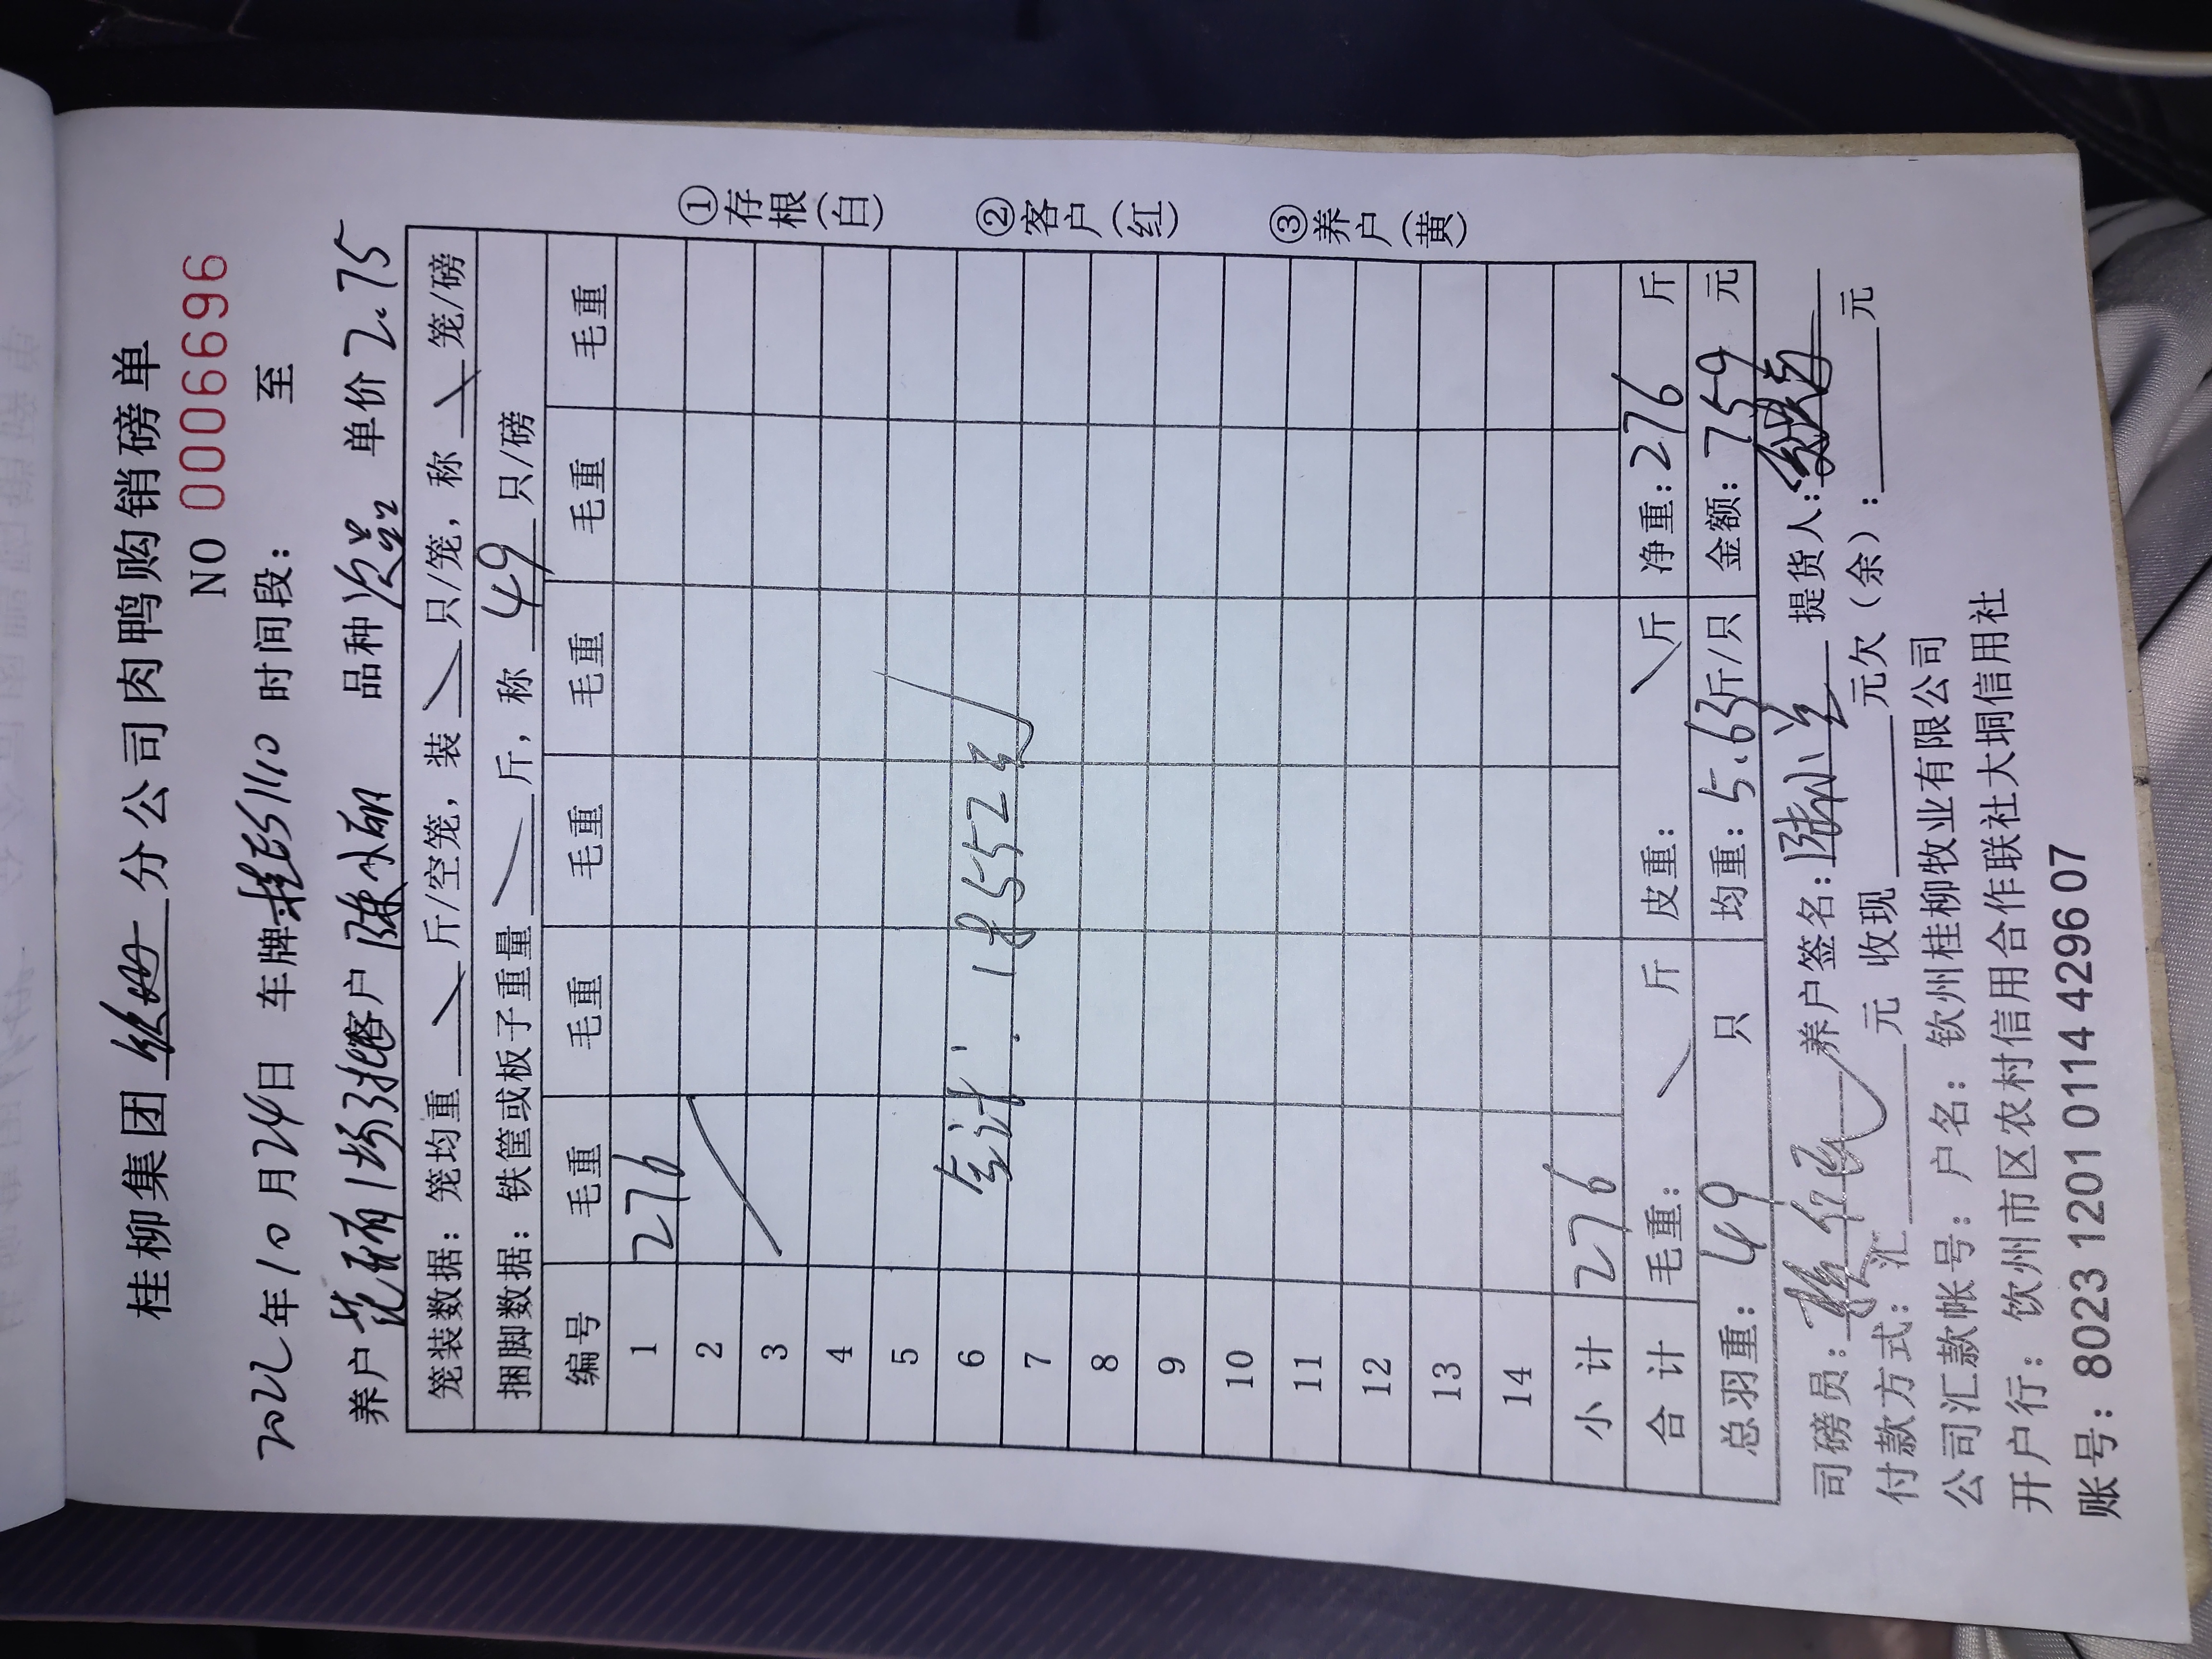 桂柳集团 钦州 分公司肉鸭购销磅单
NO 0006696
2022年10月24日 车牌 时间段： 至
养户 客户 品种次品 单价2.75
笼装数据：笼均重 斤/空笼，装 只/笼，称 笼/磅
捆脚数据：铁筐或板子重量 斤，称 49 只/磅
编号 毛重 毛重 毛重 毛重 毛重 毛重
1 276
2
3
4
5
6 合计：18552
7
8
9
10
11
12
13
14
小计 276
合计 毛重： 斤 皮重： 斤 净重：276 斤
总羽重：49 只 均重：5.63斤/只 金额：759元
司磅员： 养户签名： 提货人：
付款方式：汇 元 收现 元欠（余）： 元
公司汇款帐号：户名：钦州桂柳牧业有限公司
开户行：饮州市区农村信用合作联社大垌信用社
账号：8023 1201 0114 4296 07
①存根（白）
②客户（红）
③养户（黄）